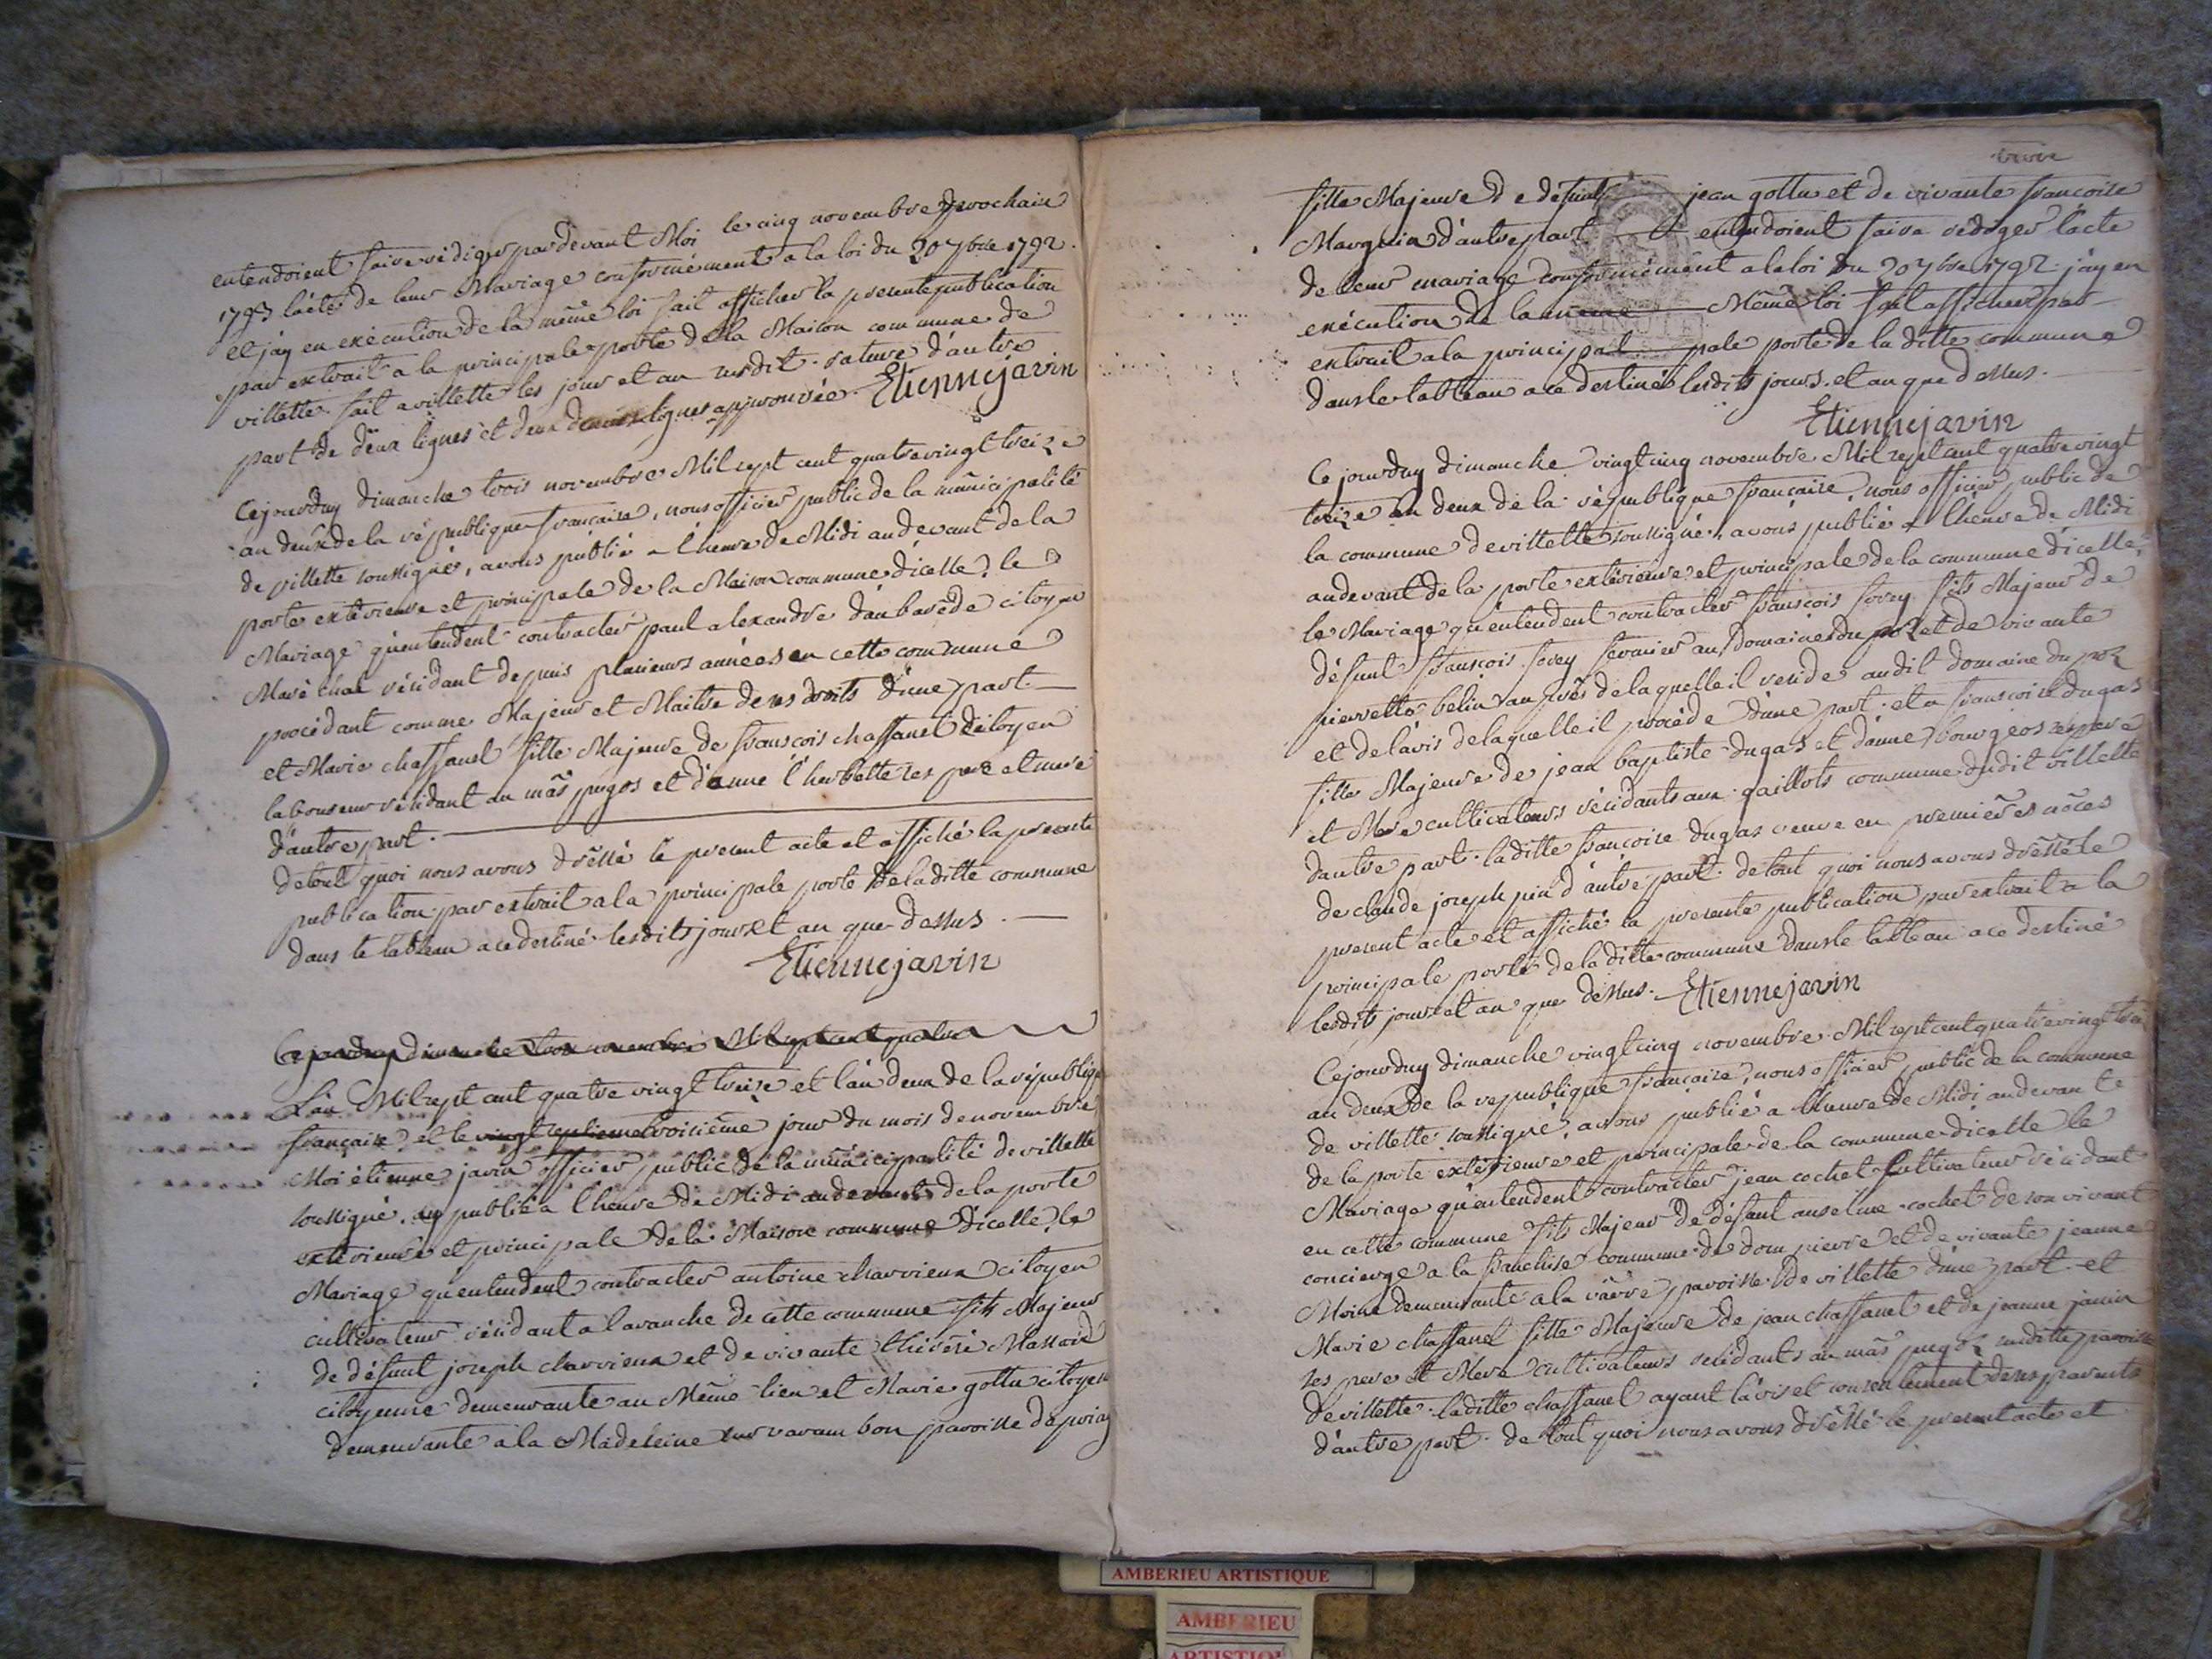 entendoient faire rédiger pardevant Moi le cinq novembre prochain
1793 l'acte de leur Mariage conformément a la loi du 20 7bre 1792.
et j'ay en exécution de la même loi fait afficher la presente publication
par extrait a la principale porte de la Maison commune de
villette. fait a villette les jour et an susdit. rature d'autre
part de deux lignes et deux demies lignes approuvée. Etienne javin
Cejourduy dimanche trois novembre Mil sept cent quatrevingt treize
an deux de la république francaise, nous officier public de la municipalité
de villette soussigné, avons publié a l'heure de Midi audevant de la
porte extérieure et principale de la Maison commune d'icelle, le
Mariage qu'entendent contracter paul alexandre danbarede citoyen
Maréchal résidant depuis plusieurs années en cette commune
procédant comme Majeur et Maitre de ses droits d'une part
et Marie chaffanel fille Majeure de francois chaffanel citoyen
laboureur résidant au mas pugos et d'anne l'herbette ses pere et mere
d'autre part.
de tout quoi nous avons dressé le present acte et affiché la presente
publication par extrait a la principale porte de laditte commune
dans le tableau a ce destiné lesdits jours et an que dessus.
Etienne javin
Cejourduy dimanche trois novembre Mil sept cent quatre
L'an Mil sept cent quatre vingt treize et l'an deux de la république
française, et le vingt septieme troisième jour du mois de novembre
Moi étienne javin officier public de la municipalité de villette
soussigné, ay publié a l'heure de Midi audevant de la porte
extérieure et principale de la Maison commune d'icelle, le
Mariage qu'entendent contracter antoine charvieux citoyen
cultivateur résidant a lavanche de cette commune fils Majeur
de défunt joseph charvieux et de vivante thérèse Massard
citoyenne demeurante au Même lieu et Marie gottu citoyen
demeurante a la Madeleine sur varambon paroisse de priay
fille Majeure de défunt jean gottu et de vivante francoise
Marguin d'autre part entendoient faire rédiger l'acte
de leur mariage conformément a la loi du 20 7bre 1792. j'ay en
exécution de la même Même loi fait afficher par
extrait a la principal pale porte de la ditte commune
dans le tableau a ce destiné lesdits jours et an que dessus.
Etienne javin
Cejourduy dimanche vingt cinq novembre Mil sept cent quatre vingt
treize an deux de la république francaise, nous officier public de
la commune de villette soussigné, avons publié a l'heure de Midi
audevant de la porte extérieure et principale de la commune d'icelle,
le Mariage qu'entendent contracter francois ferey fils Majeur de
défunt francois ferey fermier au domaine du poz et de vivante
pierrette belin auprès de laquelle il reside audit domaine du poz
et de l'avis de laquelle il procède d'une part. et a francoise dugas
fille Majeure de jean baptiste dugas et d'anne bourgeos ses pere
et Mere cultivateurs résidants aux gaillots commune dudit villette
d'autre part. laditte francoise dugas veuve en premières nôces
de claude joseph pin d'autre part. de tout quoi nous avons dressé le
present acte et affiché la presente publication par extrait a la
principale porte de la ditte commune dans le tableau a ce destiné
lesdits jours et an que dessus. Etienne javin
Cejourduy dimanche vingt cinq novembre Mil sept cent quatre vingt
an deux de la republique francaise, nous officier public de la commune
de villette soussigné, avons publié a l'heure de Midi audevant
de la porte extérieure et principale de la commune d'icelle le
Mariage qu'entendent contracter jean cochet cultivateur résidant
en cette commune fils Majeur de défunt anselme cochet de son vivant
concierge a la franchise commune de dompierre et de vivante jeanne
Moine demeurante a la paroisse de villette d'une part et
Marie chaffanel fille Majeure de jean chaffanel et de jeanne janin
ses pere et Mere cultivateurs residants au mas pugoz susditte paroisse
de villette. laditte chaffanel ayant l'avis et consentement de ses parents
d'autre part. de tout quoi nous avons dressé le present acte et
AMBERIEU ARTISTIQUE
AMBERIEU
ARTISTIQUE